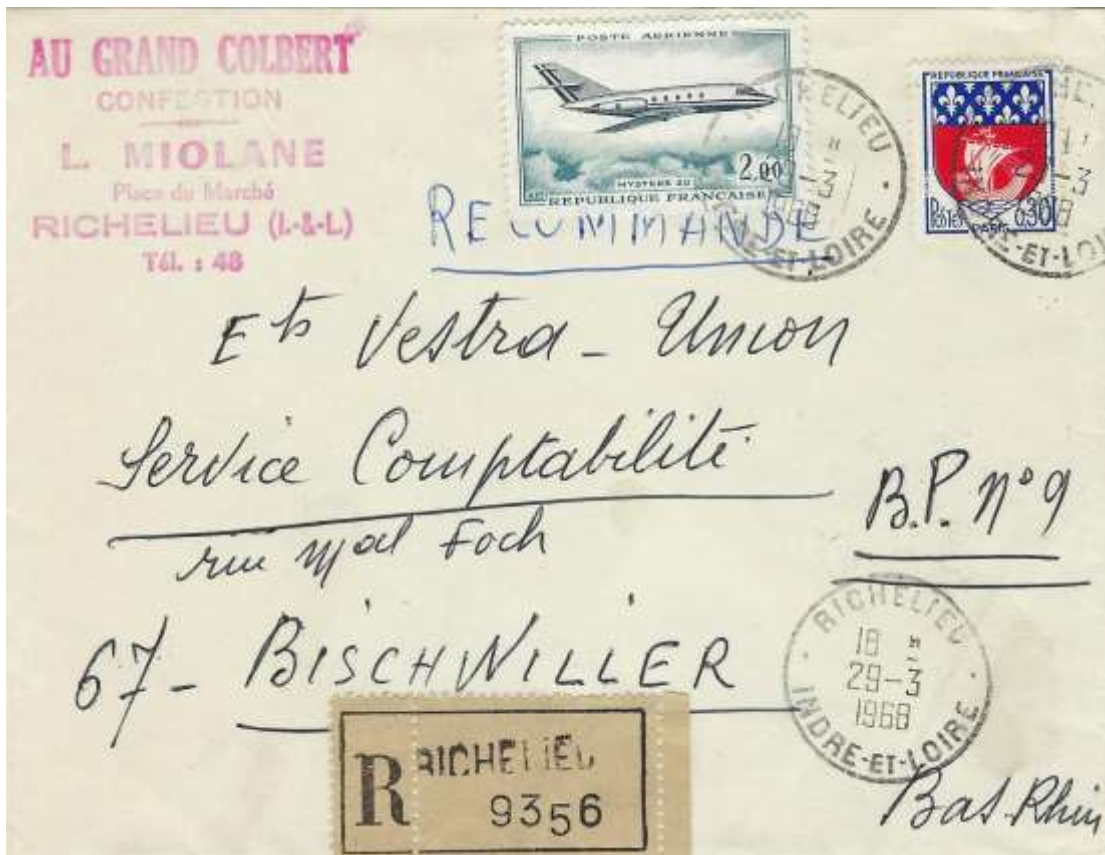 AU GRAND COLBERT
CONFECTION
L. MIOLANE
Place du Marché
RICHELIEU (I.-&-L)
Tél. : 48
POSTE AERIENNE
2,00
MYSTERE 20
REPUBLIQUE FRANÇAISE
RICHELIEU
18 H
29-3
1968
INDRE-ET-LOIRE
REPUBLIQUE FRANÇAISE
POSTES 0,30
PARIS
-ET-LOI
RECOMMANDE
Ets Vestra - Union
Service Comptabilité
B.P. N° 9
rue Mal Foch
67 - BISCHWILLER
RICHELIEU
18 H
29-3
1968
INDRE-ET-LOIRE
R RICHELIEU
9356
Bas-Rhin